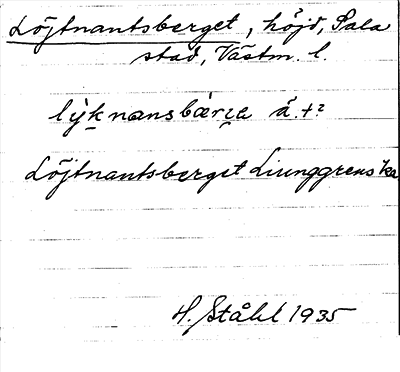 Löjtnantsberget, höjd, Sala
stad, Västm. l.
lỳknansbærịe å.+?
Löjtnantsberget Liunggrens ka
H. Ståhl 1935